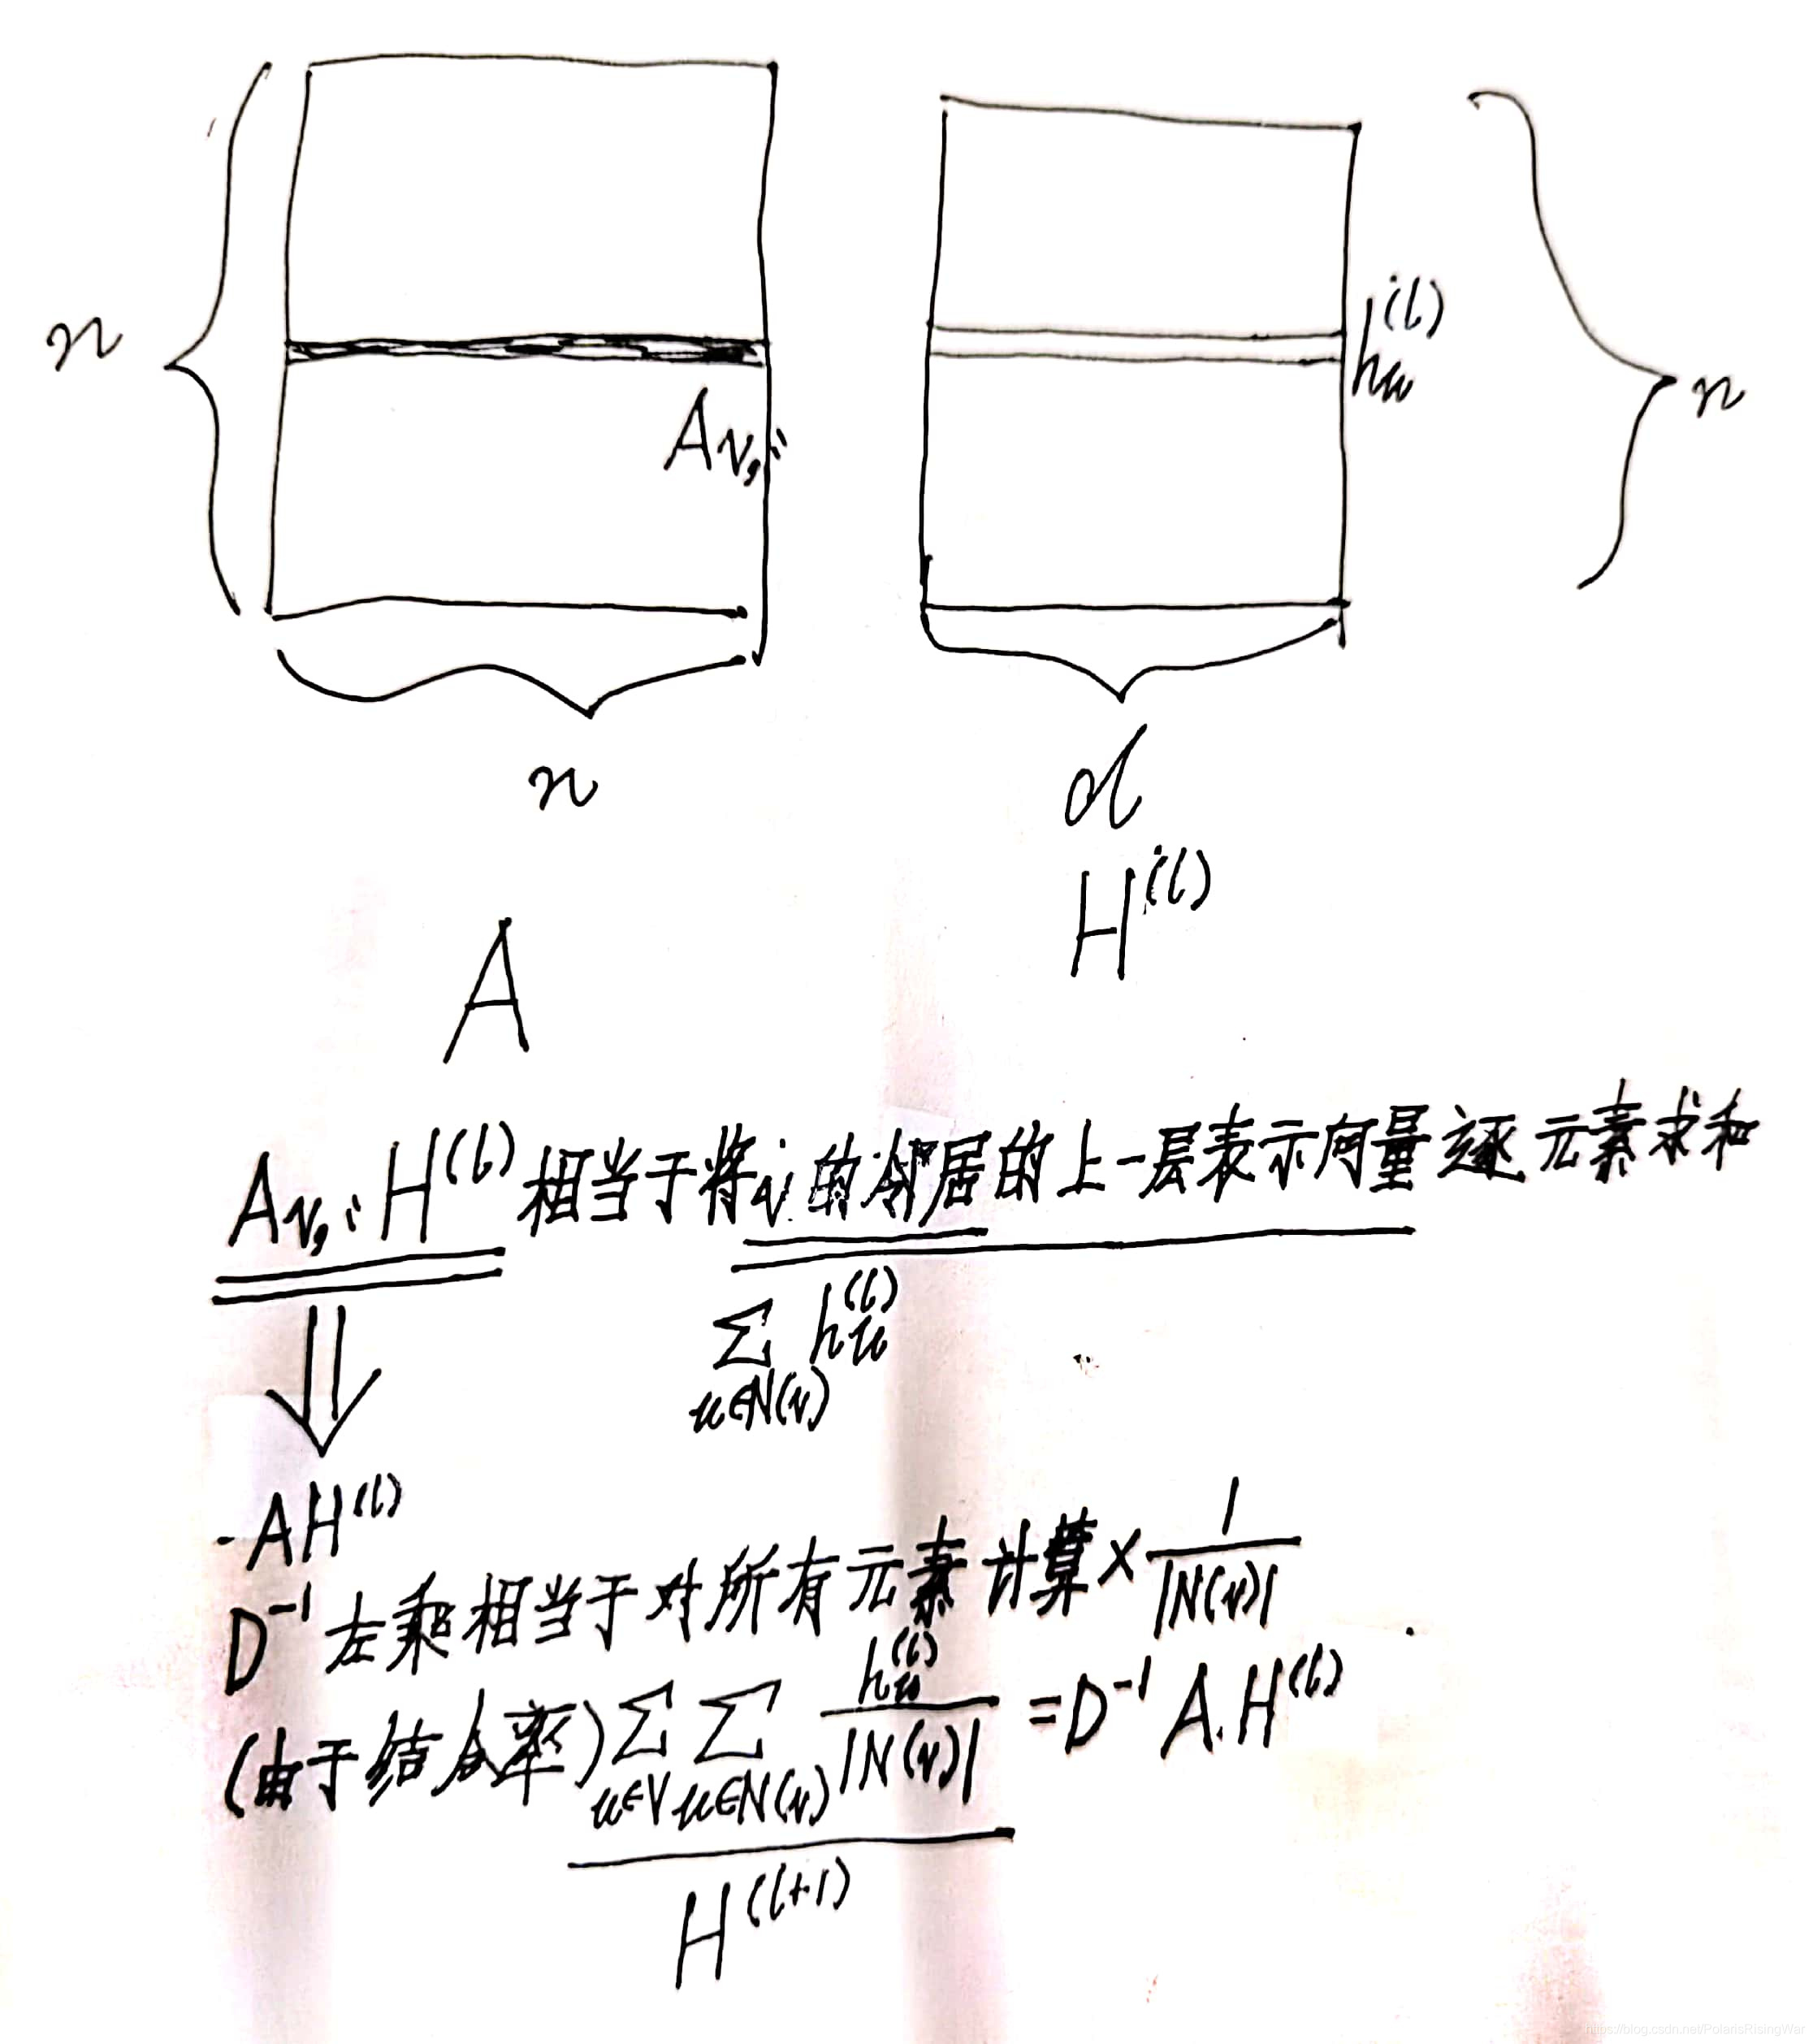 n
A_{v,:}
h_u^{(l)}
n
n
d
H^{(l)}
A
A_{v,:} H^{(l)} 相当于将v的邻居的上一层表示向量逐元素求和
\sum_{u∈N(v)} h_u^{(l)}
AH^{(l)}
D^{-1} 左乘相当于对所有元素计算 × \frac{1}{|N(v)|}
(由于结合率) \sum_{u∈V} \sum_{u∈N(v)} \frac{h_u^{(l)}}{|N(v)|} = D^{-1} A.H^{(l)}
H^{(l+1)}
https://blog.csdn.net/PolarisRisingWar